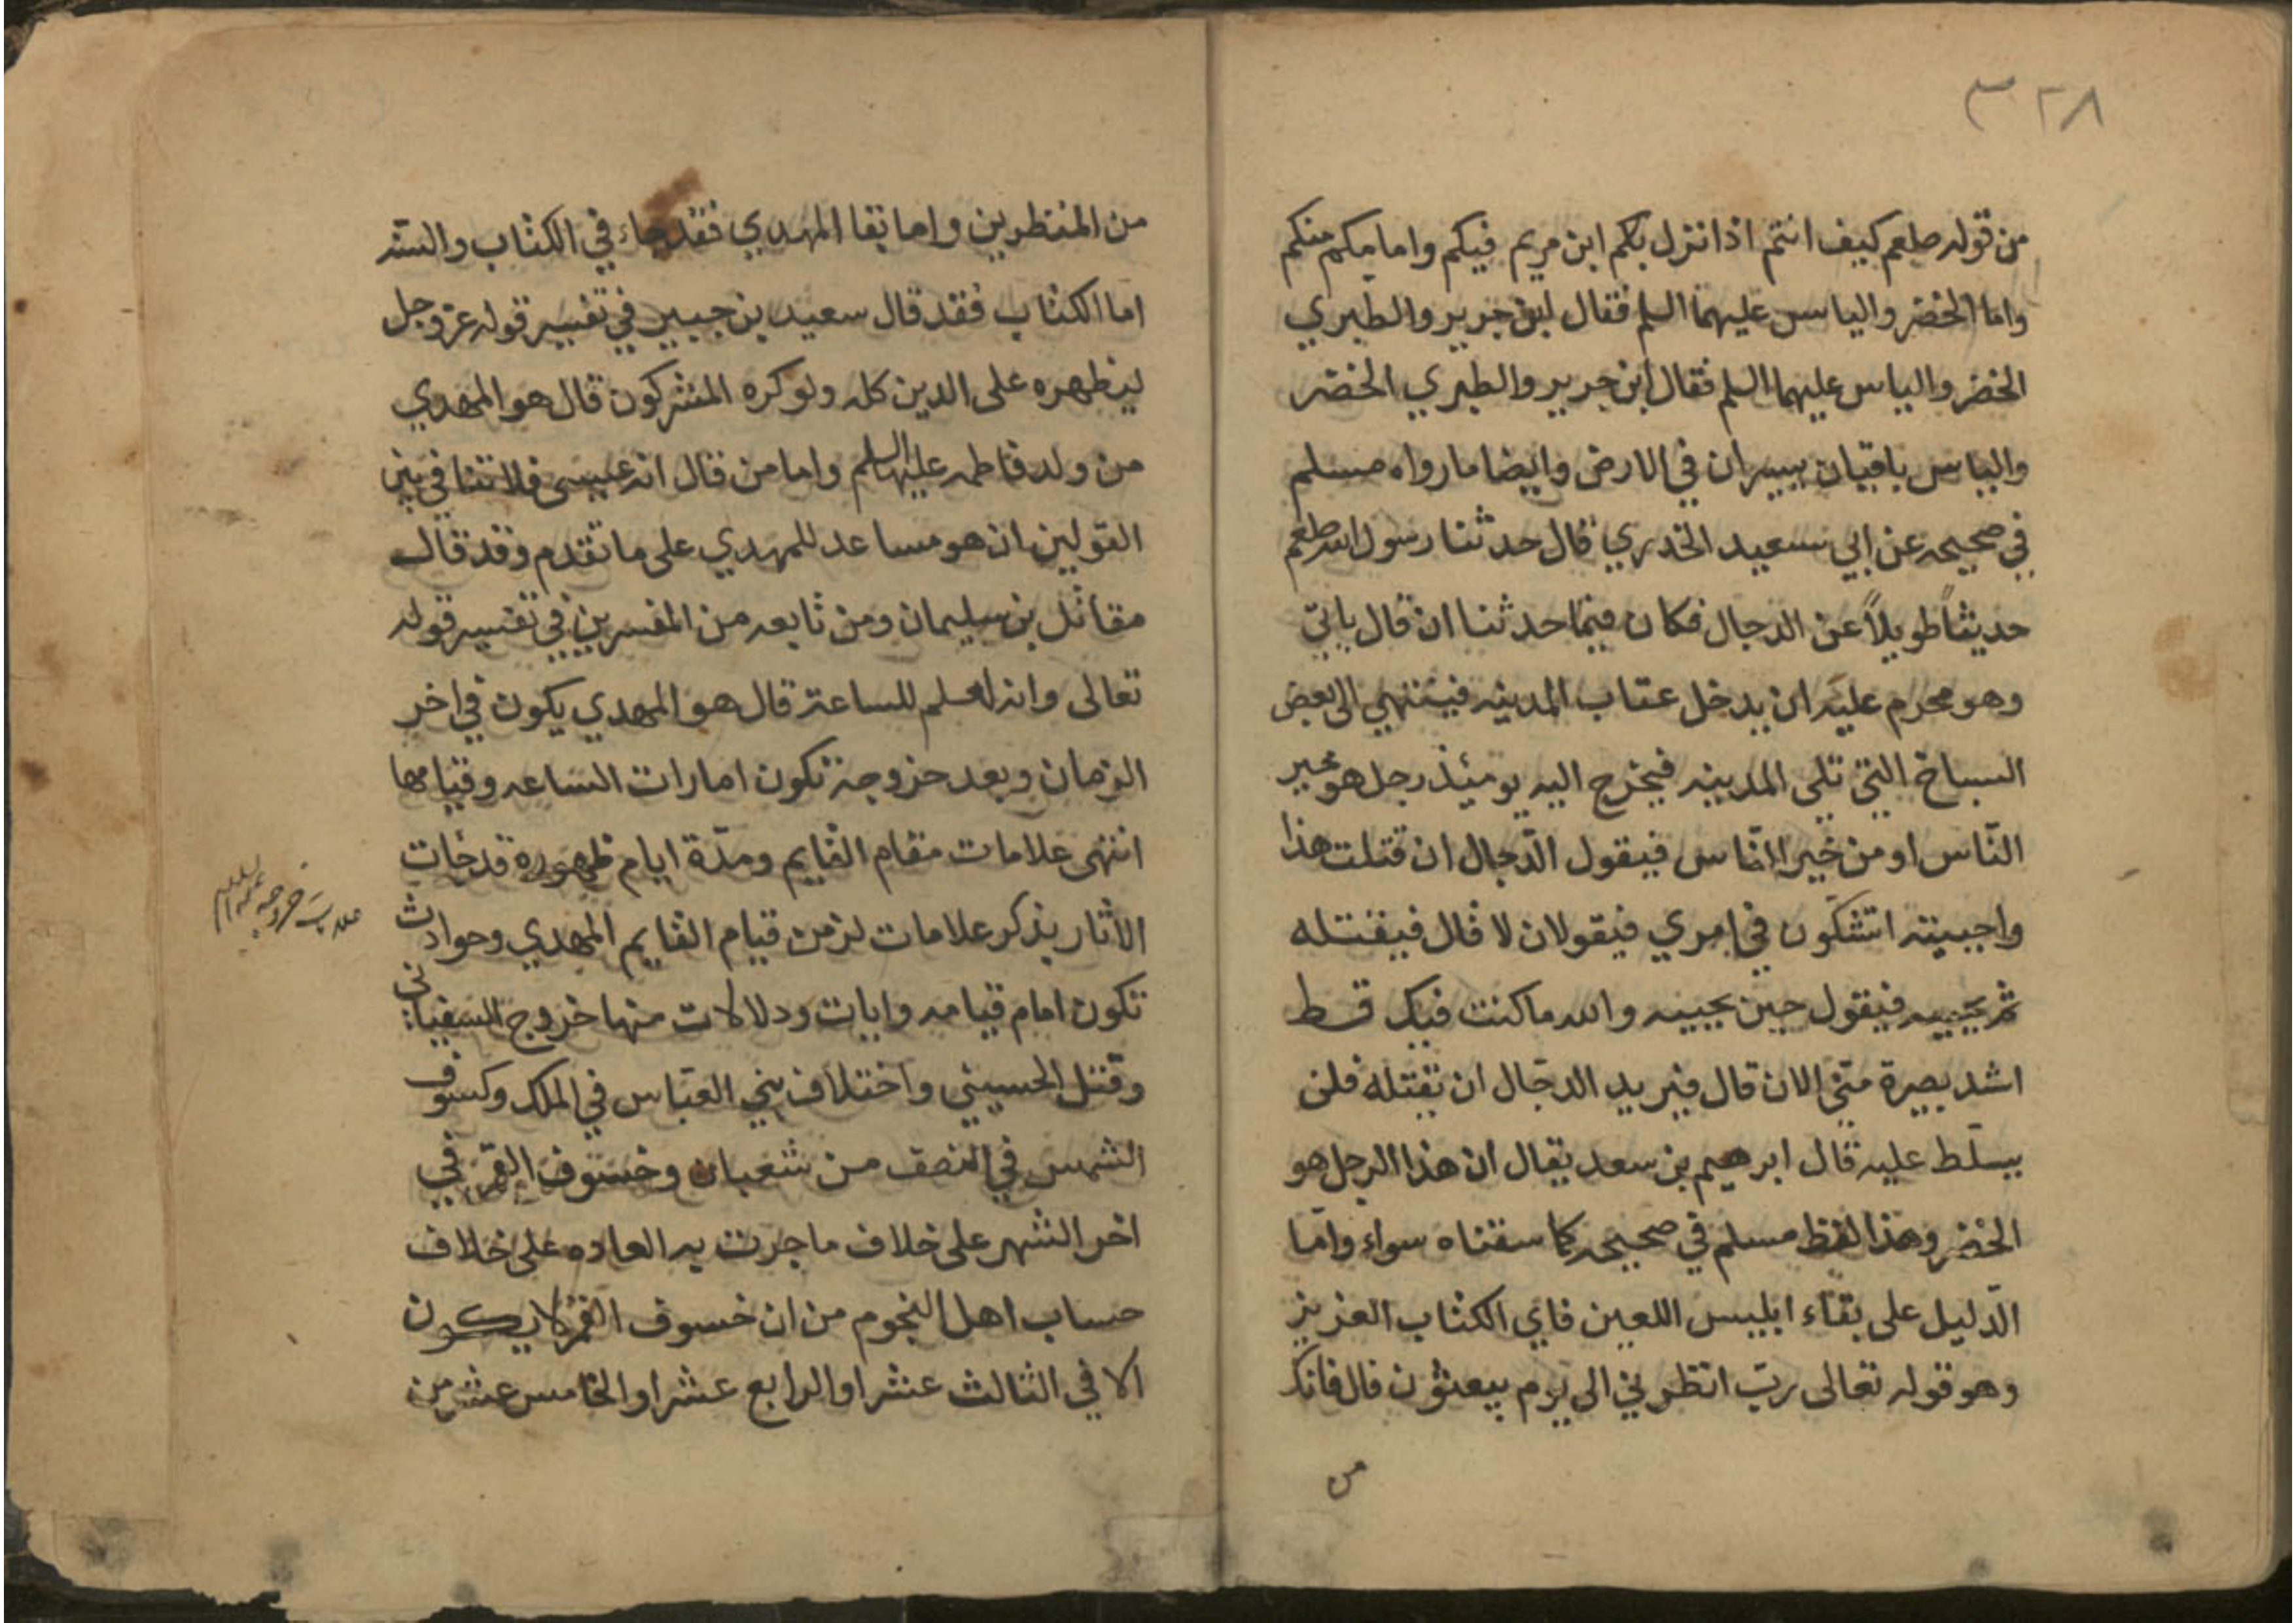 ٣٢٨
من قوله صلعم كيف انتم اذا نزل بكم ابن مريم فيكم وامامكم منكم
واما الخضر والياس عليهما السلم فقال ابن جرير والطبري
الخضر والياس عليهما السلم فقال ابن جرير والطبري الخضر
والياس باقيان يسيران في الارض وايضا ما رواه مسلم
في صحيحه عن ابي سعيد الخدري قال حدثنا رسول الله صلعم
حديثاً طويلاً عن الدجال فكان فيما حدثنا ان قال ياتي
وهو محرم عليه ان يدخل عتاب المدينه فينتهي الى بعض
السباخ التي تلي المدينه فيخرج اليه يومئذ رجل هو خير
النّاس او من خير النّاس فيقول الدّجال ان قتلت هذا
واحييته اتشكّون في امري فيقولان لا قال فيقتله
ثم يحييه فيقول حين يحييه والله ما كنت فيك قط
اشد بصيرة منّي الان قال فيريد الدجّال ان يقتله فلن
يسلّط عليه قال ابرهيم بن سعد يقال ان هذا الرجل هو
الخضر وهذا لفظ مسلم في صحيحه كما سقناه سواء وامّا
الدّليل على بقاء ابليس اللعين فاي الكتاب العزيز
وهو قوله تعالى ربّ انظرني الى يوم يبعثون قال فانك
من
من المنتظرين واما بقا المهدي فقد جاء في الكتاب والسنّه
اما الكتاب فقد قال سعيد بن جبير في تفسير قوله عز وجل
ليظهره على الدين كله ولو كره المشركون قال هو المهدي
من ولد فاطمه عليها السلم واما من قال انه عيسى فلا تنافي بين
القولين ان هو مساعد للمهدي على ما تقدم وقد قال
مقاتل بن سليمان ومن تابعه من المفسرين في تفسير قوله
تعالى وانه لعلم للساعة قال هو المهدي يكون في اخر
الزمان وبعد خروجه تكون امارات الساعه وقيامها
انتهى علامات مقام القايم ومدّة ايام ظهوره قد جات
الاثار بذكر علامات لزمن قيام القايم المهدي وحوادث
تكون امام قيامه وايات ودلالات منها خروج السفياني
وقتل الحسيني واختلاف بني العبّاس في الملك وكسوف
الشمس في النصف من شعبان وخسوف القمر في
اخر الشهر على خلاف ما جرت به العاده على خلاف
حساب اهل النجوم من ان خسوف القمر لا يكون
الا في الثالث عشر او الرابع عشر او الخامس عشر من